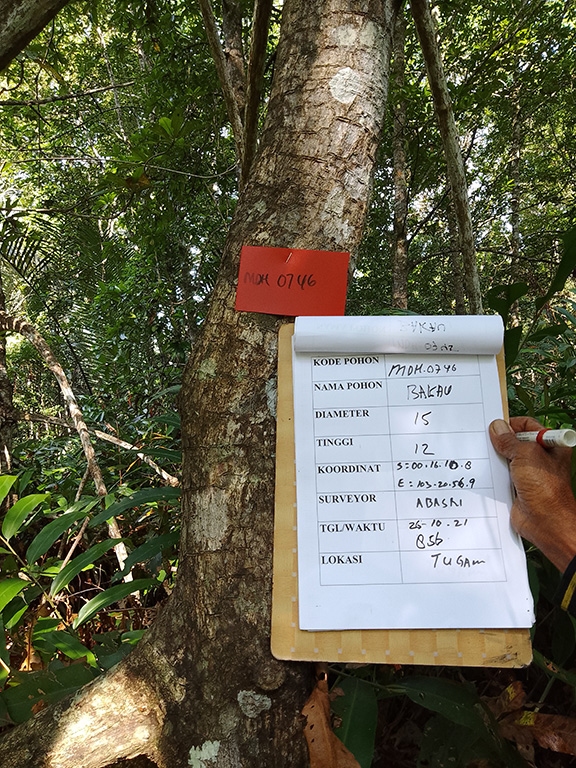 MDH 0746
KODE POHON MDH.0746
NAMA POHON BAKAU
DIAMETER 15
TINGGI 12
KOORDINAT S=00.16.10.8
E=103.20.56.9
SURVEYOR ABASRI
TGL/WAKTU 26-10-21
856
LOKASI TUGAM